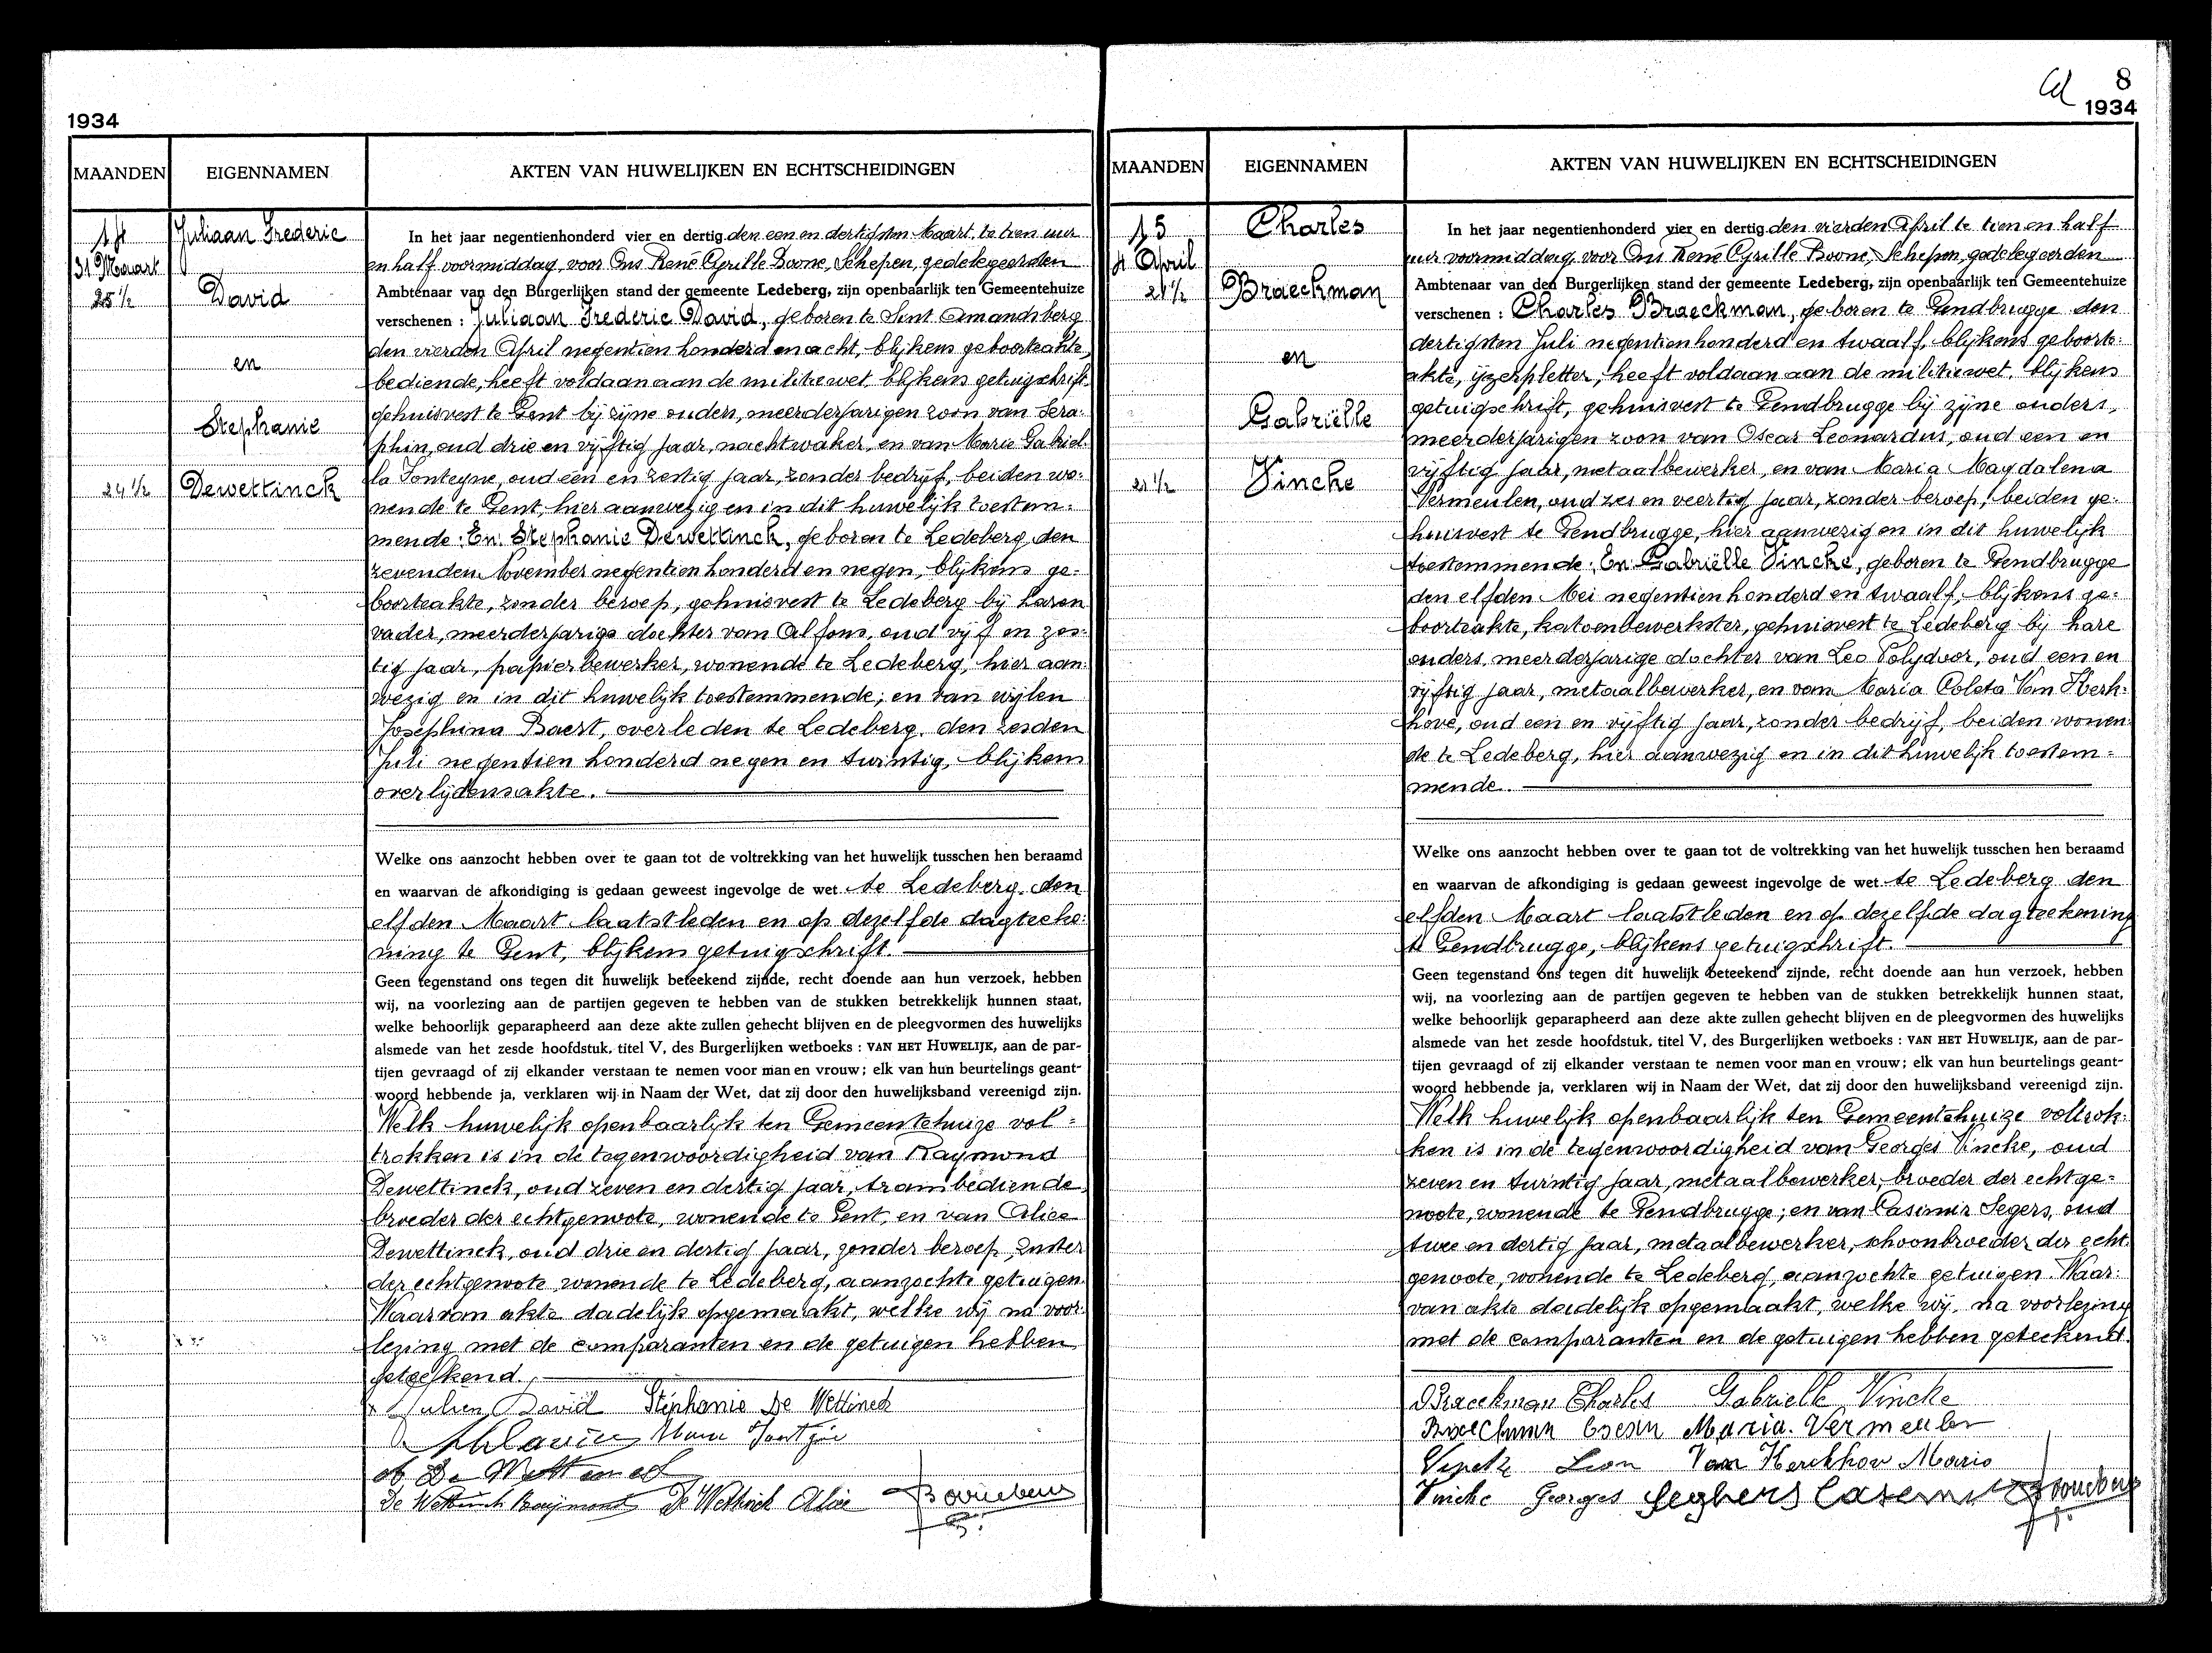 1934
MAANDEN
EIGENNAMEN
AKTEN VAN HUWELIJKEN EN ECHTSCHEIDINGEN
14
31 Maart
25 1/2
24 1/2
Juliaan Frederic
David
en
Stephanie
Dewettinck
In het jaar negentienhonderd vier en dertig den een en dertigsten Maart, te tien uur
en half voormiddag, voor Ons René Cyrille Boone, Schepen, gedelegeerden
Ambtenaar van den Burgerlijken stand der gemeente Ledeberg, zijn openbaarlijk ten Gemeentehuize
verschenen : Juliaan Frederic David, geboren te Sint Amandsberg
den vierden April negentien honderd en acht, blijkens geboorteakte,
bediende, heeft voldaan aan de militiewet, blijkens getuigschrift,
gehuisvest te Gent bij zijne ouders, meerderjarigen zoon van Sera=
phin, oud drie en vijftig jaar, nachtwaker, en van Marie Gabriel=
la Fonteyne, oud een en zestig jaar, zonder bedrijf, beiden wo=
nende te Gent, hier aanwezig en in dit huwelijk toestem=
mende; En Stephanie Dewettinck, geboren te Ledeberg, den
zevenden November negentien honderd en negen, blijkens ge=
boorteakte, zonder beroep, gehuisvest te Ledeberg bij haren
vader, meerderjarige dochter van Alfons, oud vijf en zes=
tig jaar, papierbewerker, wonende te Ledeberg, hier aan=
wezig en in dit huwelijk toestemmende; en van wijlen
Josephina Baert, overleden te Ledeberg, den zesden
Juli negentien honderd negen en twintig, blijkens
overlijdensakte.
Welke ons aanzocht hebben over te gaan tot de voltrekking van het huwelijk tusschen hen beraamd
en waarvan de afkondiging is gedaan geweest ingevolge de wet te Ledeberg, den
elfden Maart laatstleden en op dezelfde dagteeke=
ning te Gent, blijkens getuigschrift.
Geen tegenstand ons tegen dit huwelijk beteekend zijnde, recht doende aan hun verzoek, hebben
wij, na voorlezing aan de partijen gegeven te hebben van de stukken betrekkelijk hunnen staat,
welke behoorlijk geparapheerd aan deze akte zullen gehecht blijven en de pleegvormen des huwelijks
alsmede van het zesde hoofdstuk, titel V, des Burgerlijken wetboeks : VAN HET HUWELIJK, aan de par-
tijen gevraagd of zij elkander verstaan te nemen voor man en vrouw; elk van hun beurtelings geant-
woord hebbende ja, verklaren wij in Naam der Wet, dat zij door den huwelijksband vereenigd zijn.
Welk huwelijk openbaarlijk ten Gemeentehuize vol=
trokken is in de tegenwoordigheid van Raymond
Dewettinck, oud zeven en dertig jaar, trambediende,
broeder der echtgenoote, wonende te Gent, en van Alice
Dewettinck, oud drie en dertig jaar, zonder beroep, zuster
der echtgenoote, wonende te Ledeberg, aanzochte getuigen.
Waarvan akte dadelijk opgemaakt, welke wij na voor=
lezing met de comparanten en de getuigen hebben
geteekend.
Julien David Stéphanie De Wettinck
De Wettinck Raymond De Wettinck Alice
8
1934
MAANDEN
EIGENNAMEN
AKTEN VAN HUWELIJKEN EN ECHTSCHEIDINGEN
15
4 April
21 1/2
21 1/2
Charles
Braeckman
en
Gabriëlle
Vincke
In het jaar negentienhonderd vier en dertig den vierden April te tien en half
uur voormiddag, voor Ons René Cyrille Boone, Schepen, gedelegeerden
Ambtenaar van den Burgerlijken stand der gemeente Ledeberg, zijn openbaarlijk ten Gemeentehuize
verschenen : Charles Braeckman, geboren te Gendbrugge den
dertigsten Juli negentienhonderd en twaalf, blijkens geboorte=
akte, ijzerpletter, heeft voldaan aan de militiewet, blijkens
getuigschrift, gehuisvest te Gendbrugge bij zijne ouders,
meerderjarigen zoon van Oscar Leonardus, oud een en
vijftig jaar, metaalbewerker, en van Maria Magdalena
Vermeulen, oud zes en veertig jaar, zonder beroep, beiden ge=
huisvest te Gendbrugge, hier aanwezig en in dit huwelijk
toestemmende; En Gabriëlle Vincke, geboren te Gendbrugge
den elfden Mei negentien honderd en twaalf, blijkens ge=
boorteakte, katoenbewerkster, gehuisvest te Ledeberg bij hare
ouders, meerderjarige dochter van Leo Polydoor, oud een en
vijftig jaar, metaalbewerker, en van Maria Coleta Van Kerk=
hove, oud een en vijftig jaar, zonder bedrijf, beiden wonen=
de te Ledeberg, hier aanwezig en in dit huwelijk toestem=
mende.
Welke ons aanzocht hebben over te gaan tot de voltrekking van het huwelijk tusschen hen beraamd
en waarvan de afkondiging is gedaan geweest ingevolge de wet te Ledeberg den
elfden Maart laatstleden en op dezelfde dagteekening
te Gendbrugge, blijkens getuigschrift.
Geen tegenstand ons tegen dit huwelijk beteekend zijnde, recht doende aan hun verzoek, hebben
wij, na voorlezing aan de partijen gegeven te hebben van de stukken betrekkelijk hunnen staat,
welke behoorlijk geparapheerd aan deze akte zullen gehecht blijven en de pleegvormen des huwelijks
alsmede van het zesde hoofdstuk, titel V, des Burgerlijken wetboeks : VAN HET HUWELIJK, aan de par-
tijen gevraagd of zij elkander verstaan te nemen voor man en vrouw; elk van hun beurtelings geant-
woord hebbende ja, verklaren wij in Naam der Wet, dat zij door den huwelijksband vereenigd zijn.
Welk huwelijk openbaarlijk ten Gemeentehuize voltrok=
ken is in de tegenwoordigheid van Georges Vincke, oud
zeven en twintig jaar, metaalbewerker, broeder der echtge=
noote, wonende te Gendbrugge; en van Casimir Segers, oud
twee en dertig jaar, metaalbewerker, schoonbroeder der echt=
genoote, wonende te Ledeberg, aanzochte getuigen. Waar=
van akte dadelijk opgemaakt, welke wij, na voorlezing
met de comparanten en de getuigen hebben geteekend.
Braeckman Charles Gabrielle Vincke
Maria Vermeulen
Leon Van Kerckhov Maria
Vincke Georges Seghers